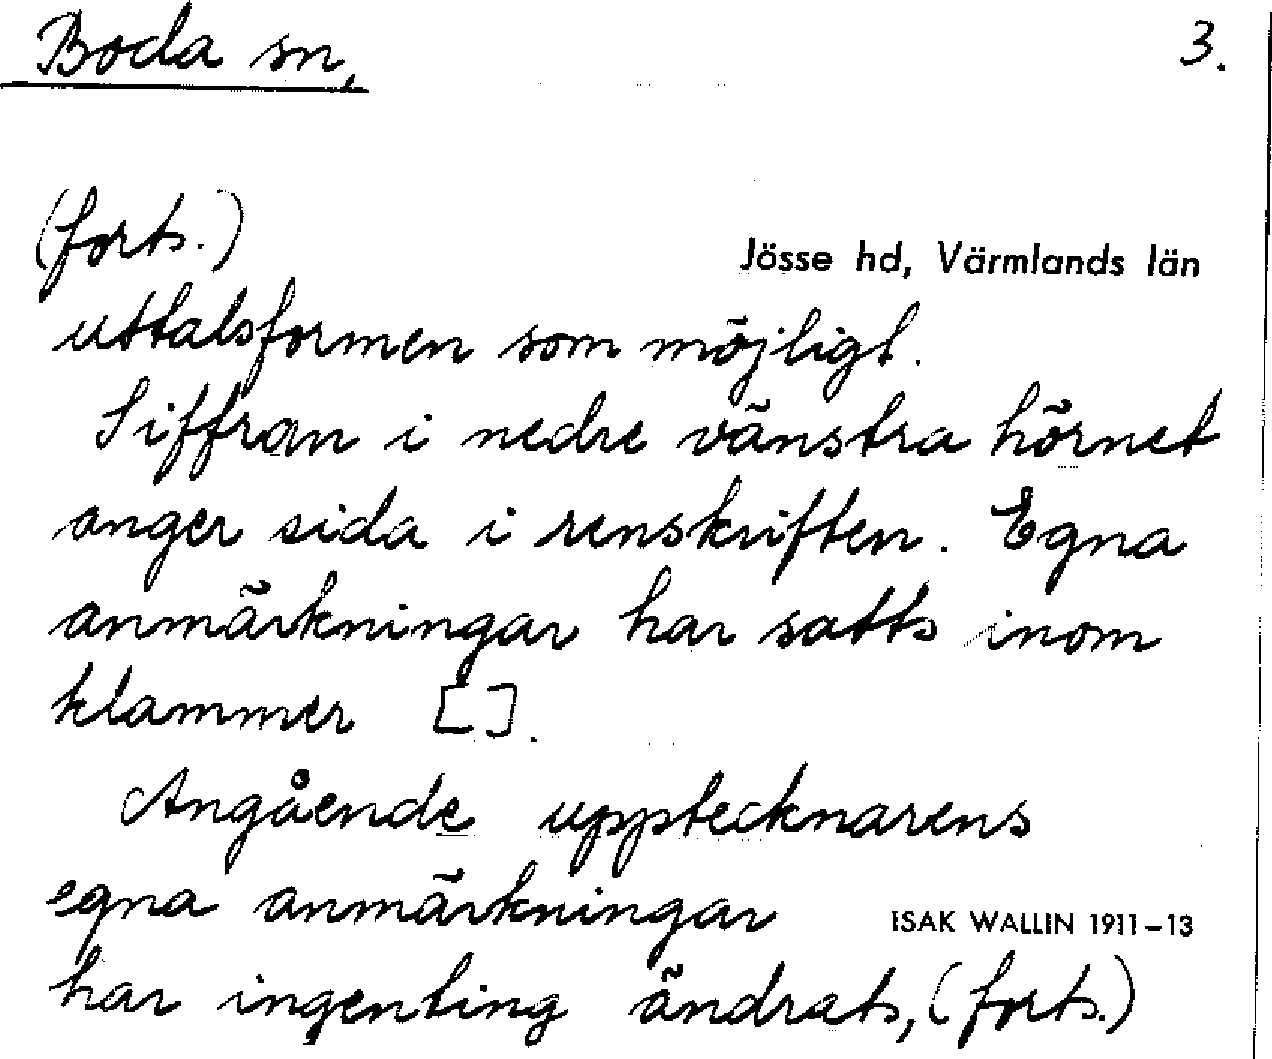 Boda sn, 3.
(forts.)
Jösse hd, Värmlands län
uttalsformen som möjligt.
Siffran i nedre vänstra hörnet
anger sida i renskriften. Egna
anmärkningar har satts inom
klammer [ ].
Angående upptecknarens
egna anmärkningar
ISAK WALLIN 1911–13
har ingenting ändrats, (forts.)